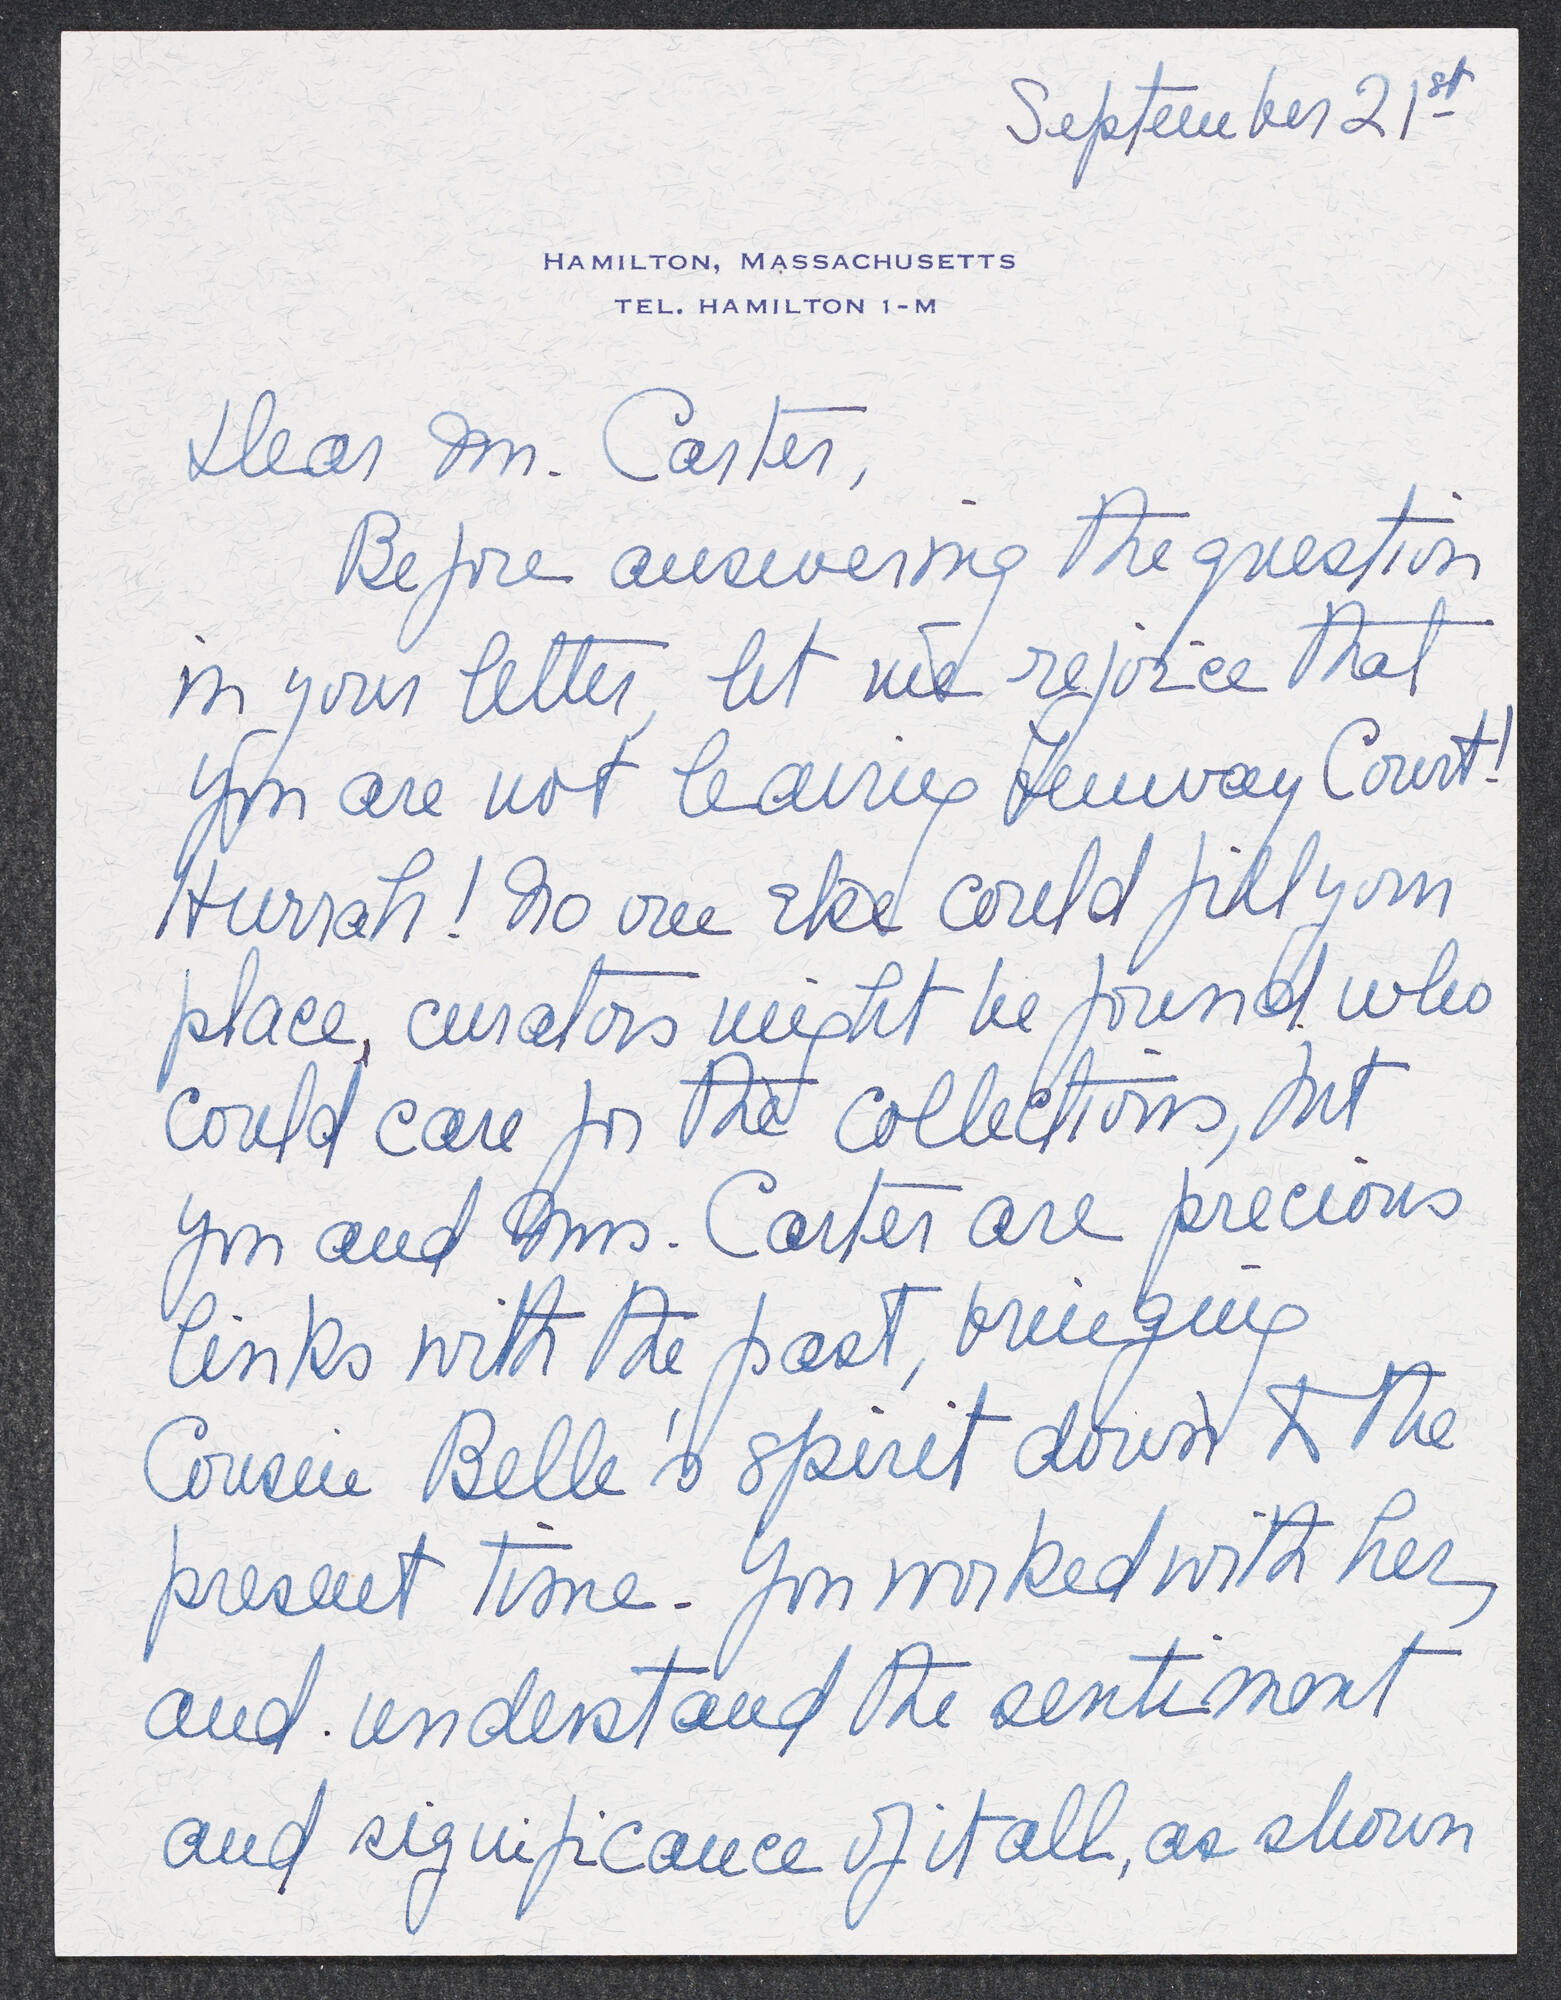 September 21st
HAMILTON, MASSACHUSETTS
TEL. HAMILTON 1-M
Dear Mr. Carter,
Before answering the question
in your letter, let me rejoice that
you are not leaving Fenway Court!
Hurrah! No one else could fill your
place, curators might be found who
could care for the collections, but
you and Mrs. Carter are precious
links with the past, bringing
Cousin Belle's spirit down to the
present time. You worked with her,
and understand the sentiment
and significance of it all, as shown